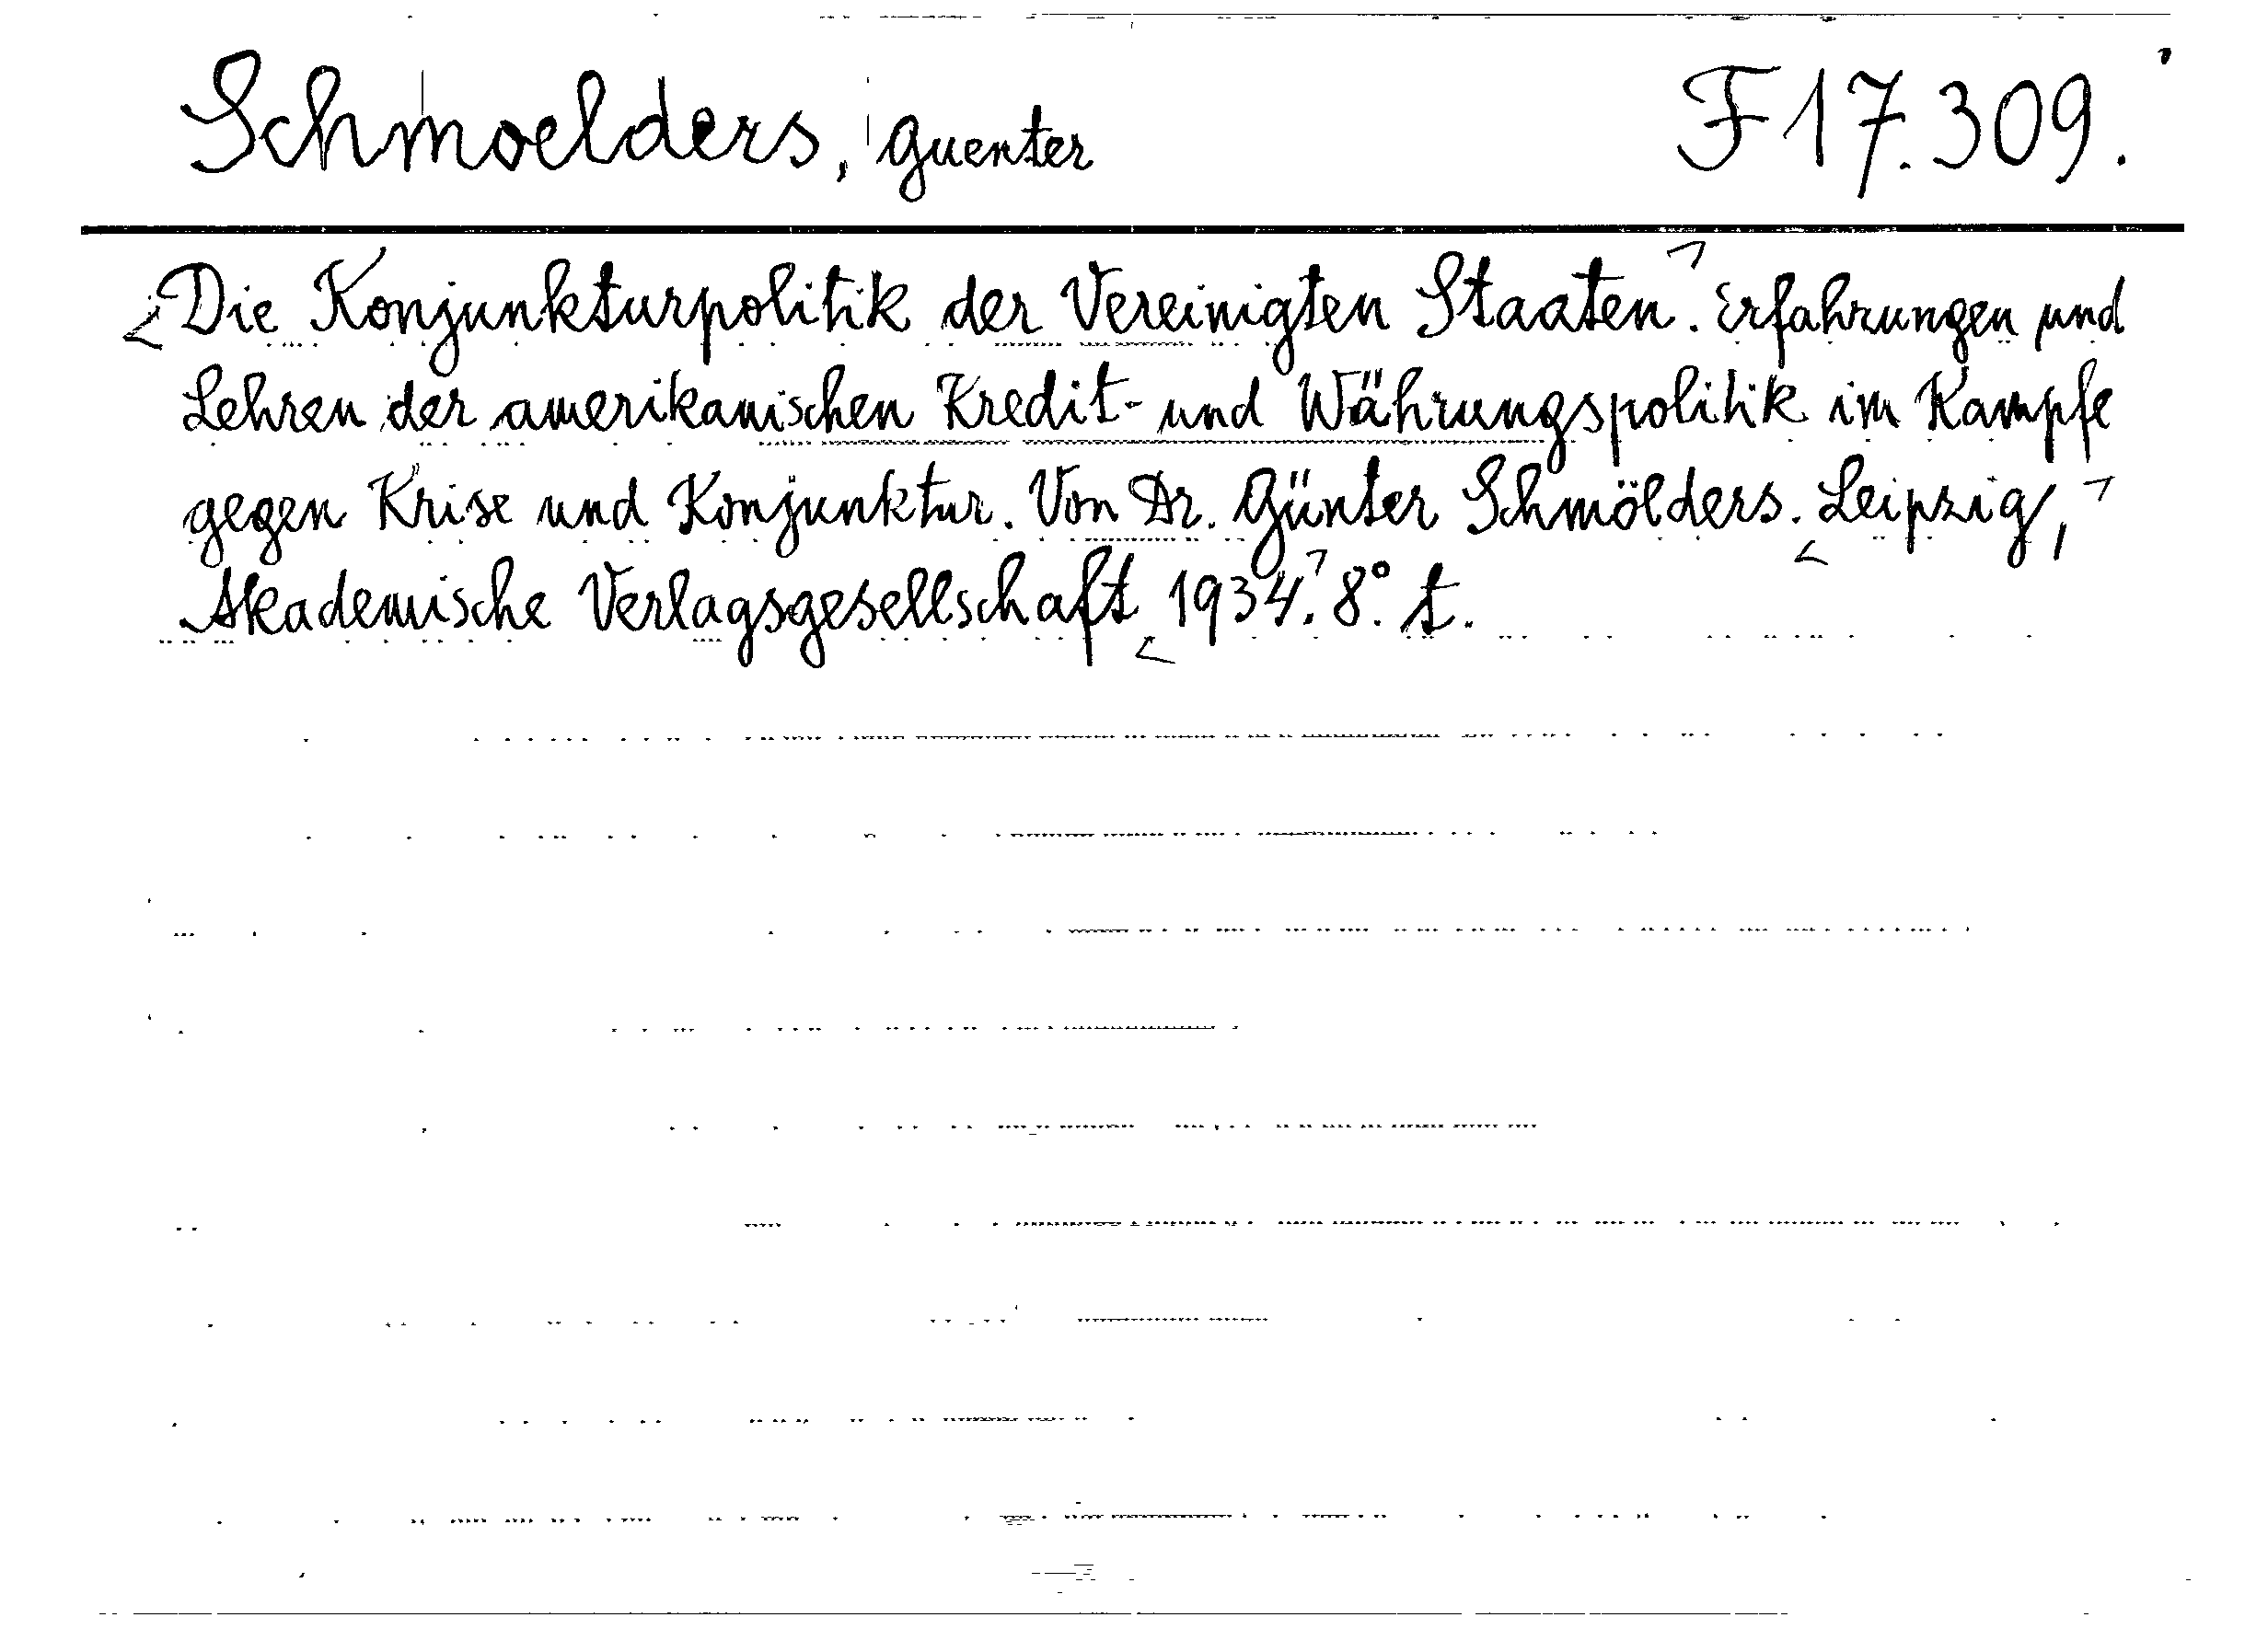 Schmoelders, Guenter F 17.309.
Die Konjunkturpolitik der Vereinigten Staaten. Erfahrungen und
Lehren der amerikanischen Kredit- und Währungspolitik im Kampfe
gegen Krise und Konjunktur. Von Dr. Günter Schmölders. Leipzig,
Akademische Verlagsgesellschaft 1934. 8°. t.